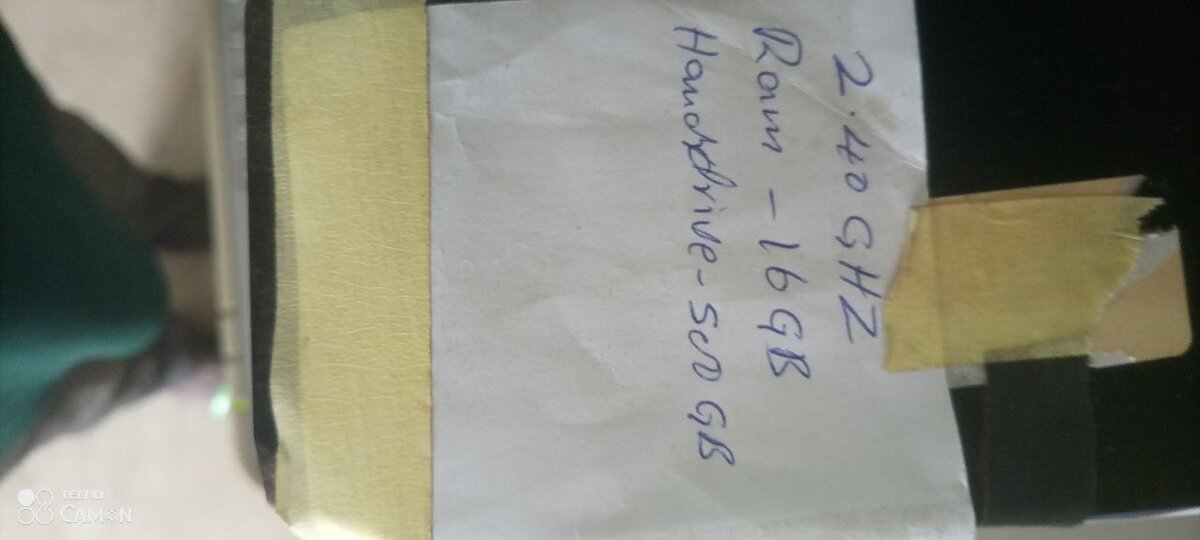 2.40 GHZ
Ram - 16 GB
Handdrive - 500 GB
TECNO
CAMON